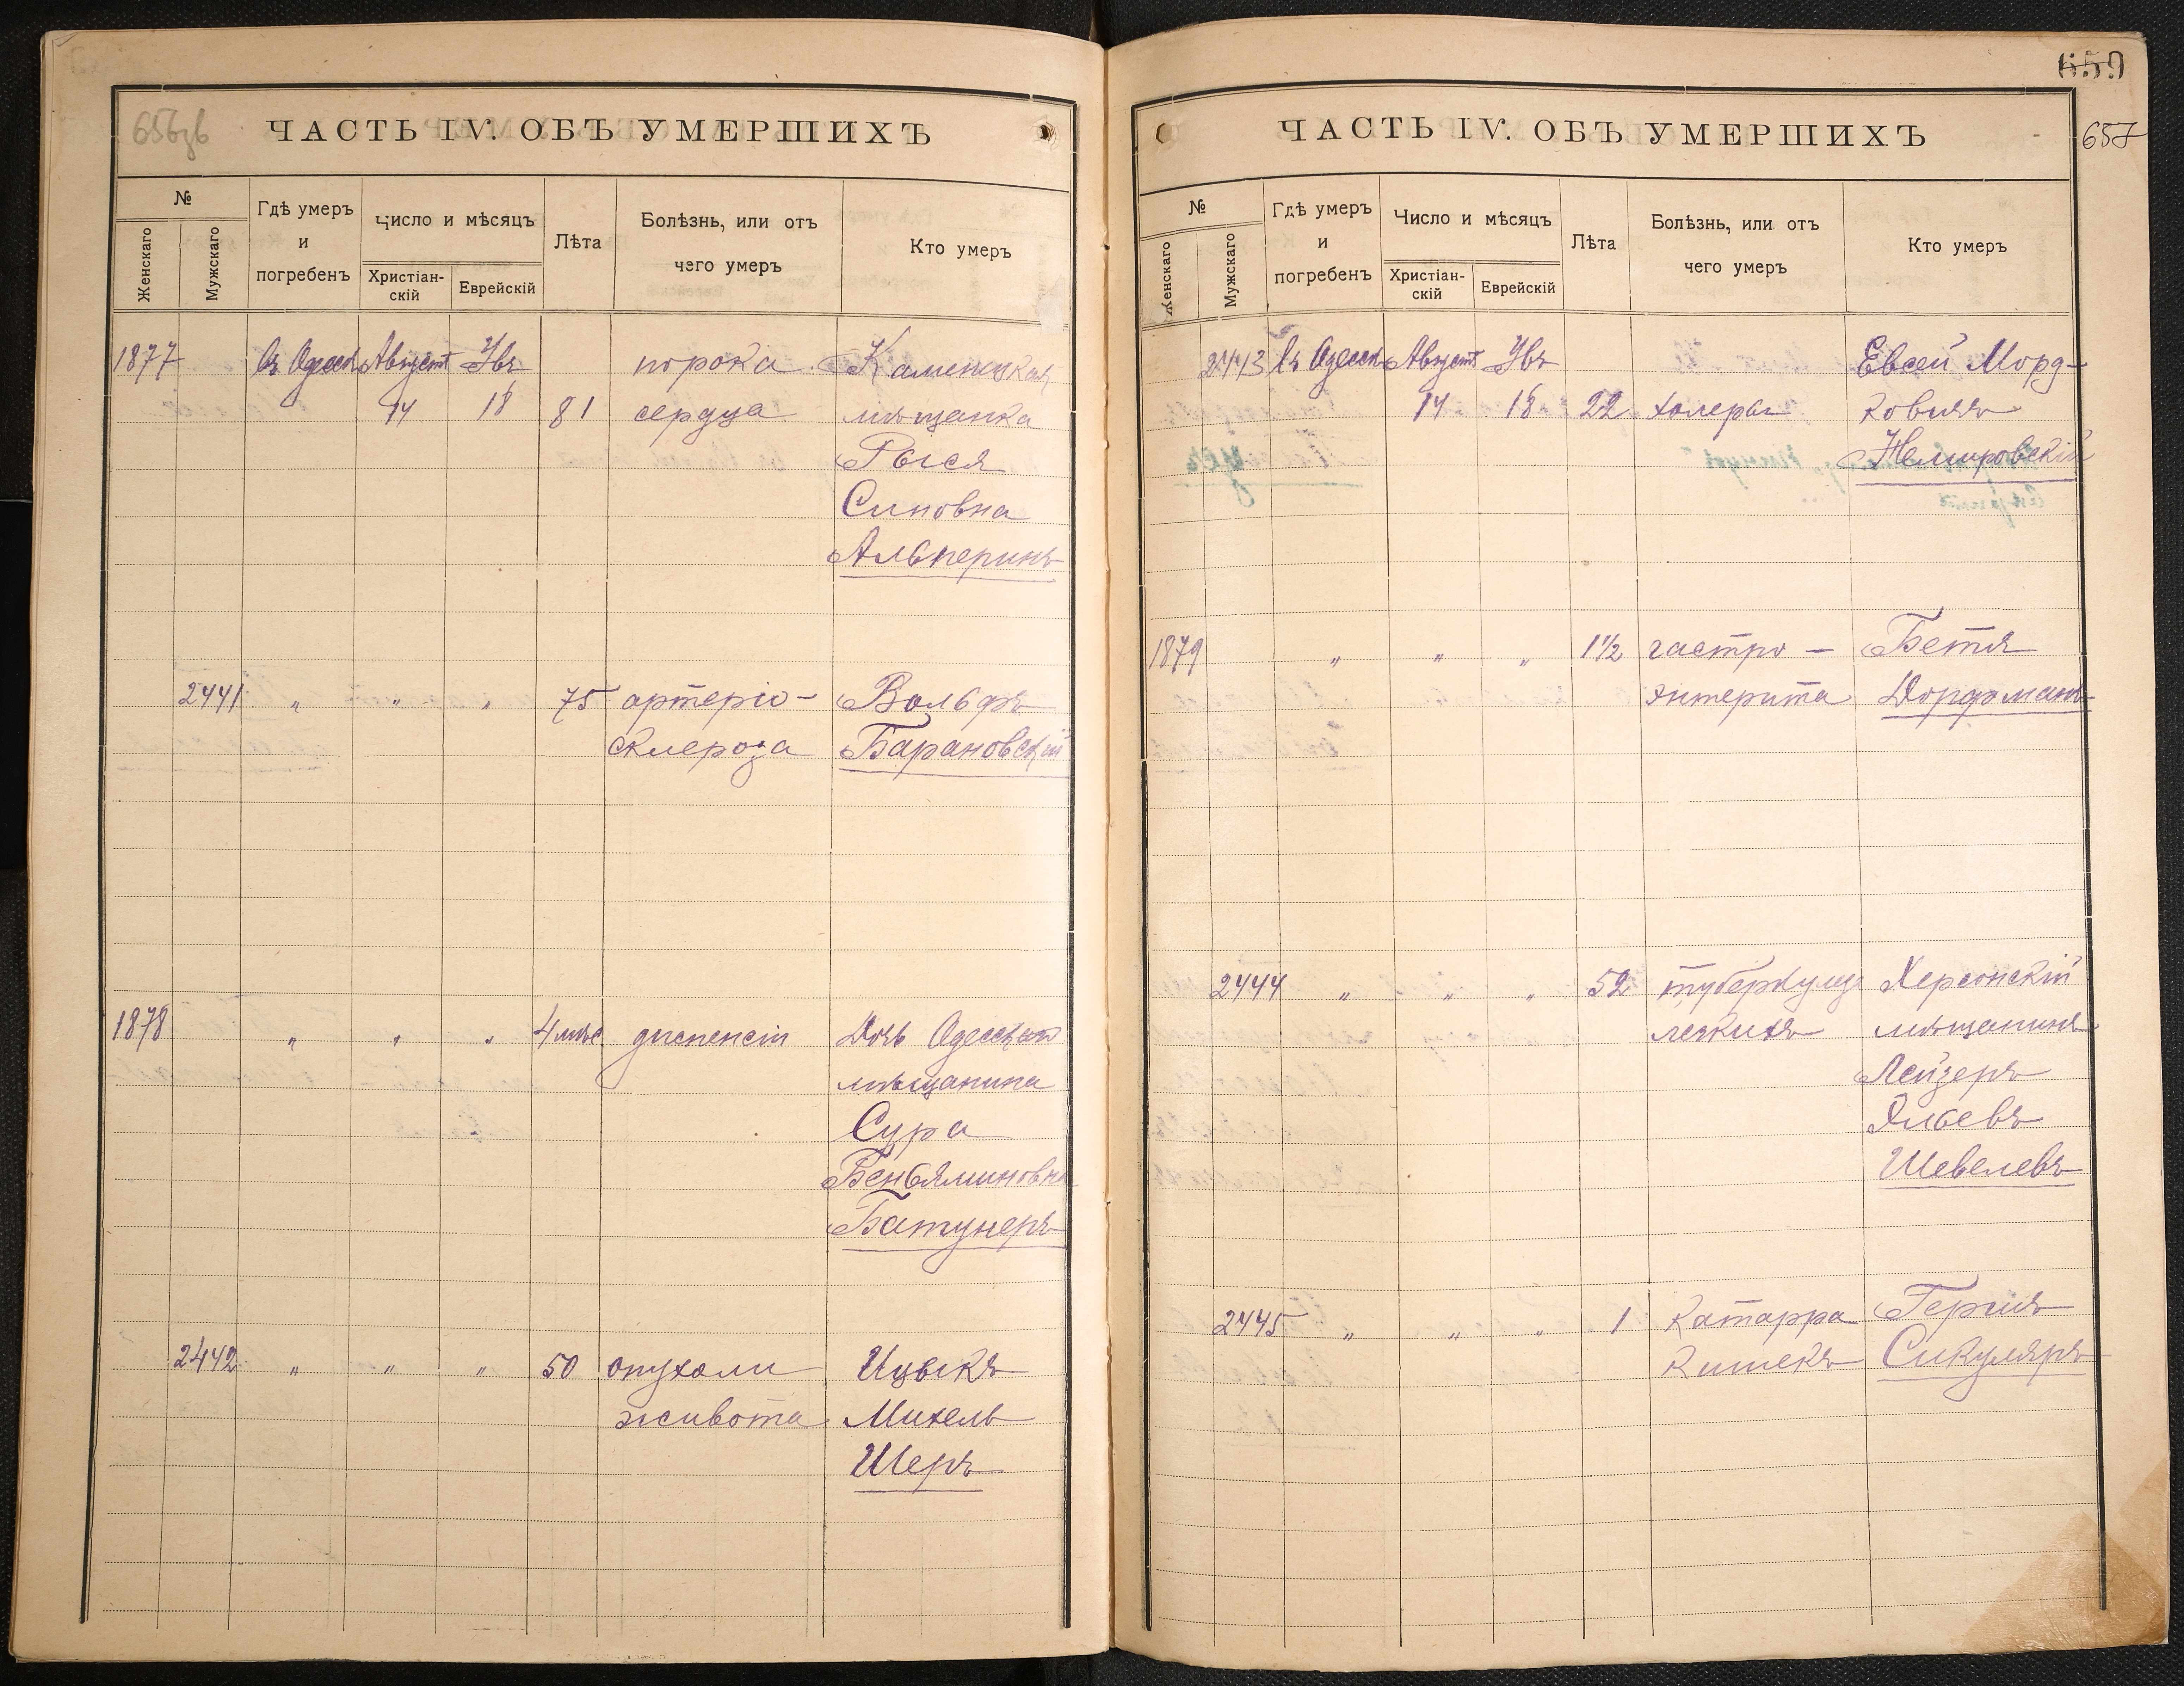 656зв
ЧАСТЬ IV. ОБЪ УМЕРШИХЪ
№
Женскаго
Мужскаго
Гдѣ умеръ
и
погребенъ
Число и мѣсяцъ
Христіан-
скій
Еврейскій
Лѣта
Болѣзнь, или отъ
чего умеръ
Кто умеръ
1877 въ Одессѣ Августъ порока Каменская
14 18 81 сердца мѣщанка
Рыся
Симовна
Альперинъ
2441 " " " 75 артеріо- Вольфъ
склероза Барановскій
1878 " " " 4 мѣс диспепсіи Дочь Одесскаго
мѣщанина
Сура
Веньяминовна
Батунеръ
2442 " " " 50 опухоли Ицыкъ
живота Михель
Шеръ
659
657
ЧАСТЬ IV. ОБЪ УМЕРШИХЪ
№
Женскаго
Мужскаго
Гдѣ умеръ
и
погребенъ
Число и мѣсяцъ
Христіан-
скій
Еврейскій
Лѣта
Болѣзнь, или отъ
чего умеръ
Кто умеръ
2443 въ Одессѣ Августъ Евсей Морд-
14 18 22 холеры ковичъ
Немировскій
1879 " " " 1½ гастро- Бетя
энтерита Дорфманъ
2444 " " " 52 туберкулеза Херсонскій
легкихъ мѣщанинъ
Лейзеръ
Эльевъ
Шевелевъ
2445 " " " 1 катарра Гершъ
кишекъ Сикуляръ